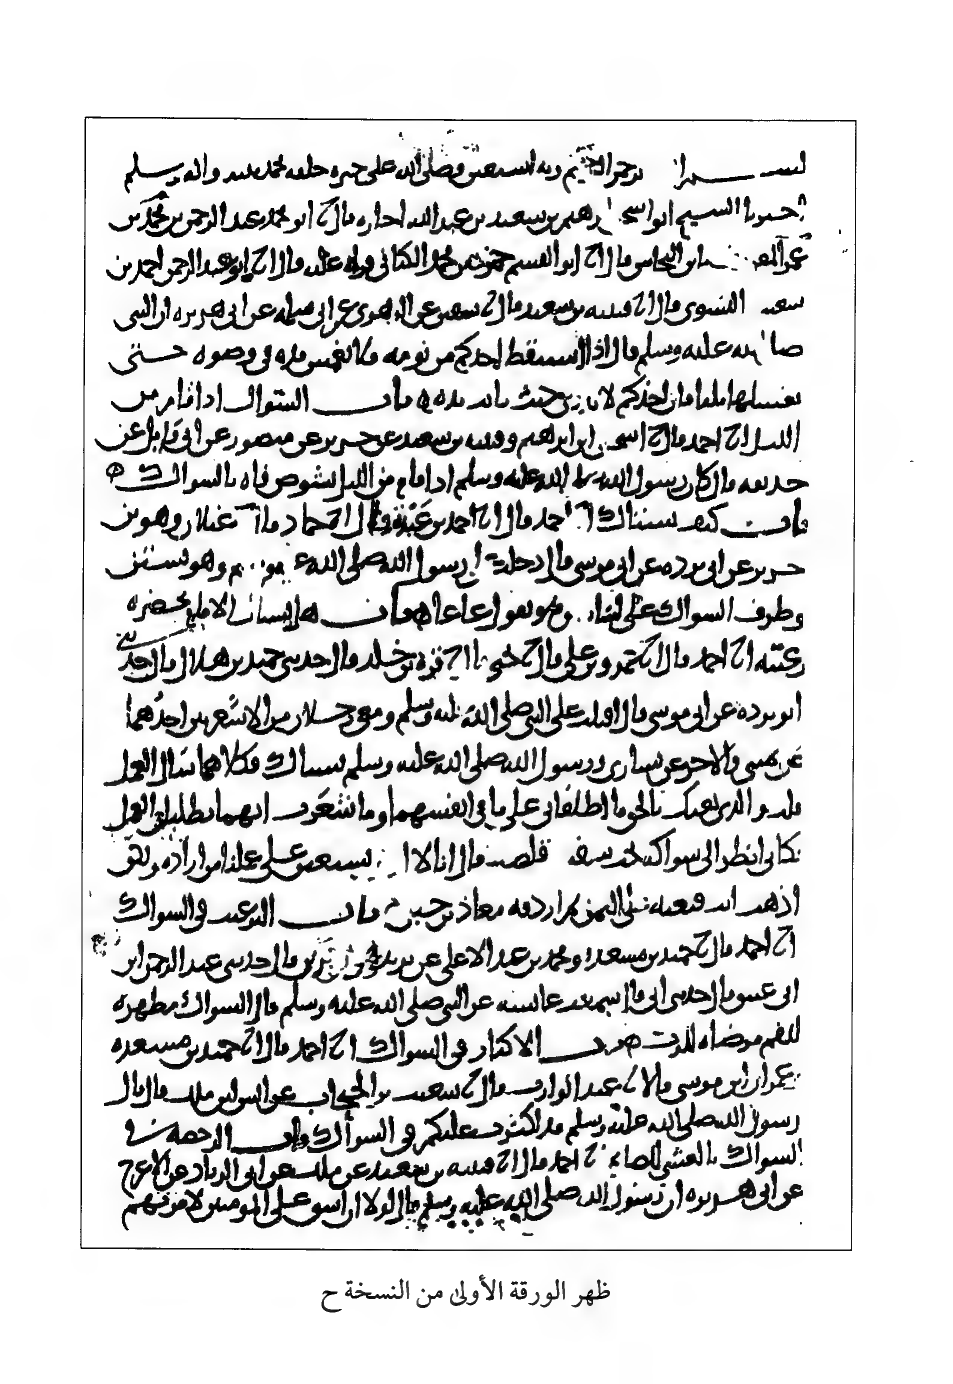 بسم الله الرحمن الرحيم وبه استعين وصلى الله على خيره خلقه محمد عبده واله وسلم
اخبرنا الشيخ ابو اسحق ابرهيم بن سعيد بن عبد الله اجازه قال ابو محمد عبد الرحمن بن محمد بن
عمر المعروف بابن النحاس قال ابو القسم حمزة بن محمد الكناني قراه عليه قال ابو عبد الرحمن احمد بن
شعيب النسوى قال قتيبه بن سعيد قال سفين عن الزهري عن ابي سلمه عن ابي هريره ان النبي
صلى الله عليه وسلم قال اذا استيقظ احدكم من نومه فلا يغمس يده في وضوه حتى
يغسلها ثلثا فان احدكم لا يدري حيث باتت يده باب السواك اذا قام من
الليل احمد قال اسحق بن ابراهيم وقتيبه بن سعيد عن جرير عن منصور عن ابي وايل عن
حذيفه قال كان رسول الله صلى الله عليه وسلم اذا قام من الليل يشوص فاه بالسواك
باب كيف يستاك احمد قال احمد بن عبدة قال حماد غيلان وهو بن
جرير عن ابي برده عن ابي موسى قال دخلت على رسول الله صلى الله عليه وسلم وهو يستن
وطرف السواك على لسانه وهو يقول عاعا باب هل يستاك الامام بحضره
رعيته احمد قال عمرو بن علي قال يحيى قره بن خالد قال حدثني حميد بن هلال قال حدثني
ابو برده عن ابي موسى قال اقبلت على النبي صلى الله عليه وسلم ومعي رجلان من الاشعريين احدهما
عن يميني والاخر عن يساري ورسول الله صلى الله عليه وسلم يستاك فكلاهما سال العمل
قلت والذي بعثك بالحق ما اطلعاني على ما في انفسهما وما شعرت انهما يطلبان العمل
فكاني انظر الى سواكه تحت شفته قلصت قال انا لا نستعين على عملنا من اراده ولكن
اذهب انت فبعثه على اليمن ثم اردفه معاذ بن جبل باب الترغيب في السواك
احمد قال حميد بن مسعده ومحمد بن عبد الاعلى عن يزيد وهو ابن زريع قال حدثني عبد الرحمن ابن
ابي عتيق قال حدثني ابي قال سمعت عايشه عن النبي صلى الله عليه وسلم قال السواك مطهره
للفم مرضاه للرب باب الاكثار في السواك احمد قال حميد بن مسعده
وعمران ابن موسى قالا عبد الوارث قال شعيب بن الحبحاب عن انس ابن ملك قال قال
رسول الله صلى الله عليه وسلم قد اكثرت عليكم في السواك باب الرخصه في
السواك بالعشي للصايم احمد قال قتيبه بن سعيد عن ملك عن ابي الزناد عن الاعرج
عن ابي هريره ان رسول الله صلى الله عليه وسلم قال لولا ان اشق على المومنين لامرتهم
ظهر الورقة الأولى من النسخة ح